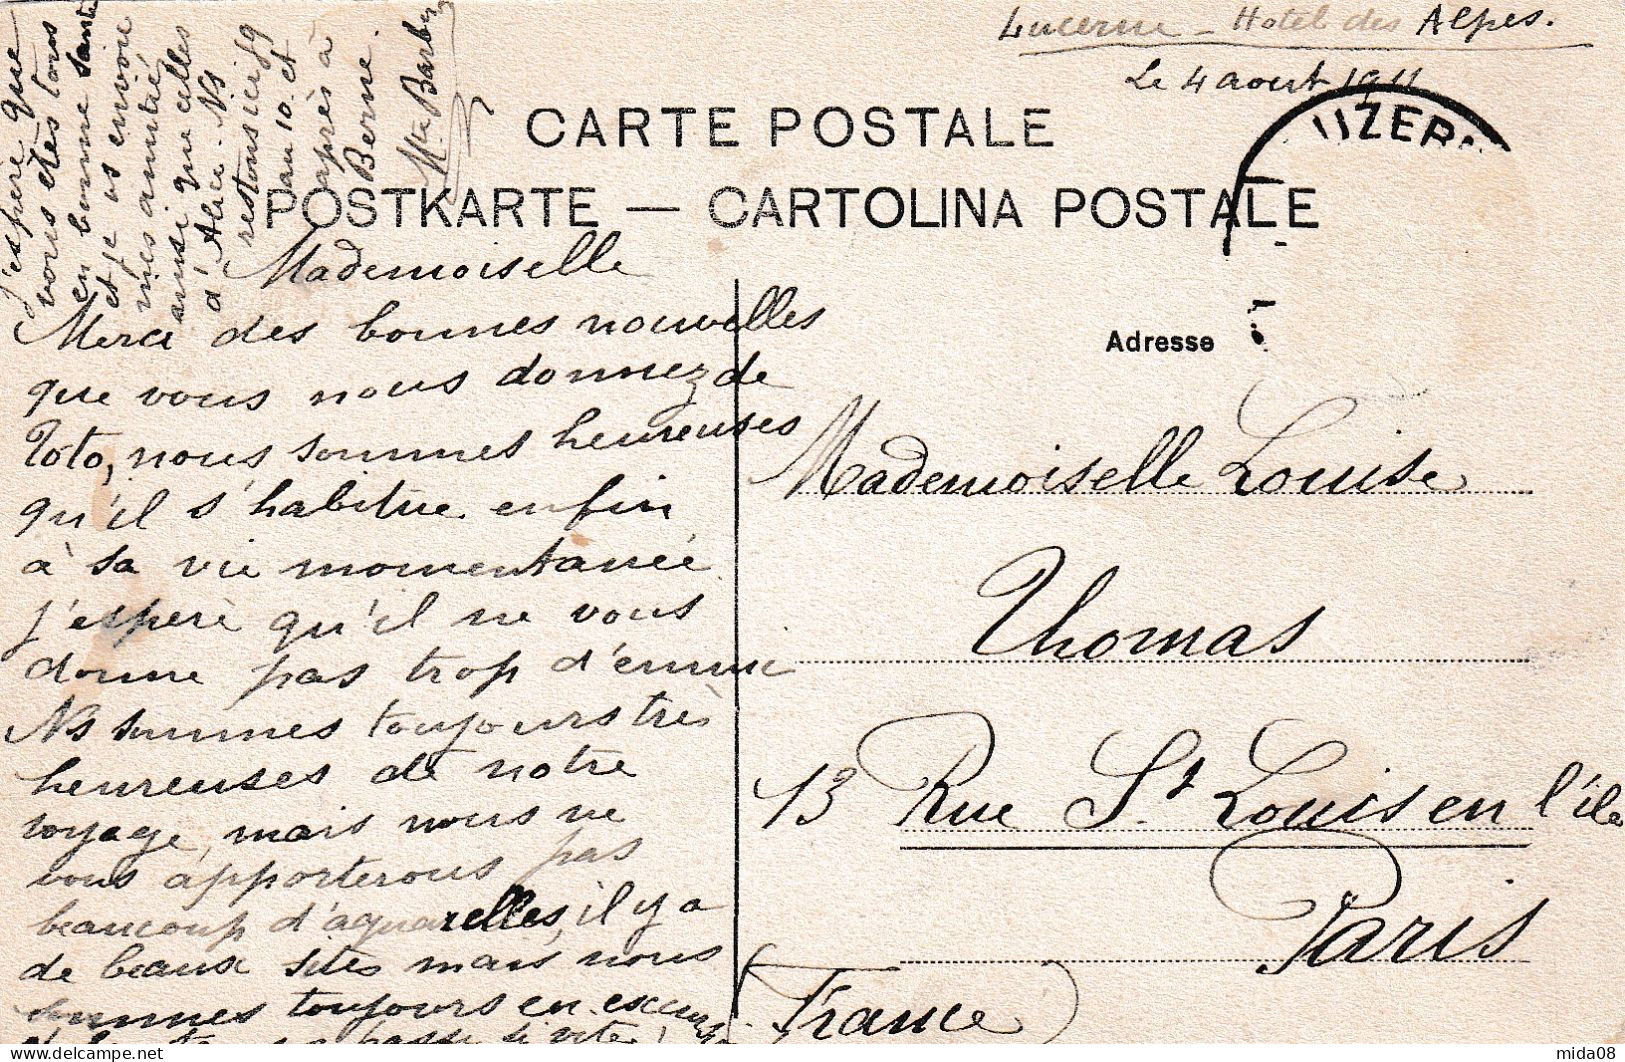 Lucerne - Hotel des Alpes.
Le 4 aout 1911
CARTE POSTALE
POSTKARTE — CARTOLINA POSTALE
UZER
Mademoiselle
Merci des bonnes nouvelles
que vous nous donnez de
Toto, nous sommes heureuses
qu'il s'habitue enfin
à sa vie momentanée
j'espère qu'il ne vous
donne pas trop d'ennui
Ns sommes toujours très
heureuses de notre
voyage, mais nous ne
vous apporterons pas
beaucoup d'aquarelles, il y a
de beaux sites mais nous
sommes toujours en
passe si vite!
j'espère que
vous êtes tous
en bonne santé
et je vs envoie
mes amitiés
ainsi que celles
d'Alice. Ns
restons ici
au 10. et
après à
Berne.
Adresse :
Mademoiselle Louise
Thomas
13 Rue St. Louis en l'île
Paris
(France)
mida08